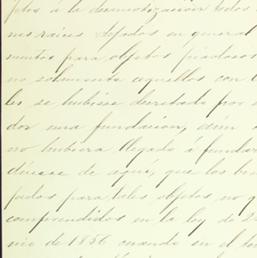 ptos á la desamortizacion todos
nes raices dejados en general
mentos para objetos piadosos
no solamente aquellos con
les se hubiese decretado por
dor una fundacion, aún
no hubiera llegado á fundar
dúcese de aquí, que los bie
jados para tales objetos no q
comprendidos en la ley de 2
nio de 1856 cuando en el